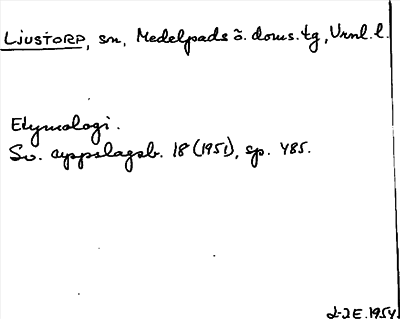 LJUSTORP, sn, Medelpads ö. doms.tg, Vrnl. l.
Etymologi.
Sv. uppslagsb. 18 (1951), sp. 485.
J-JE. 1954